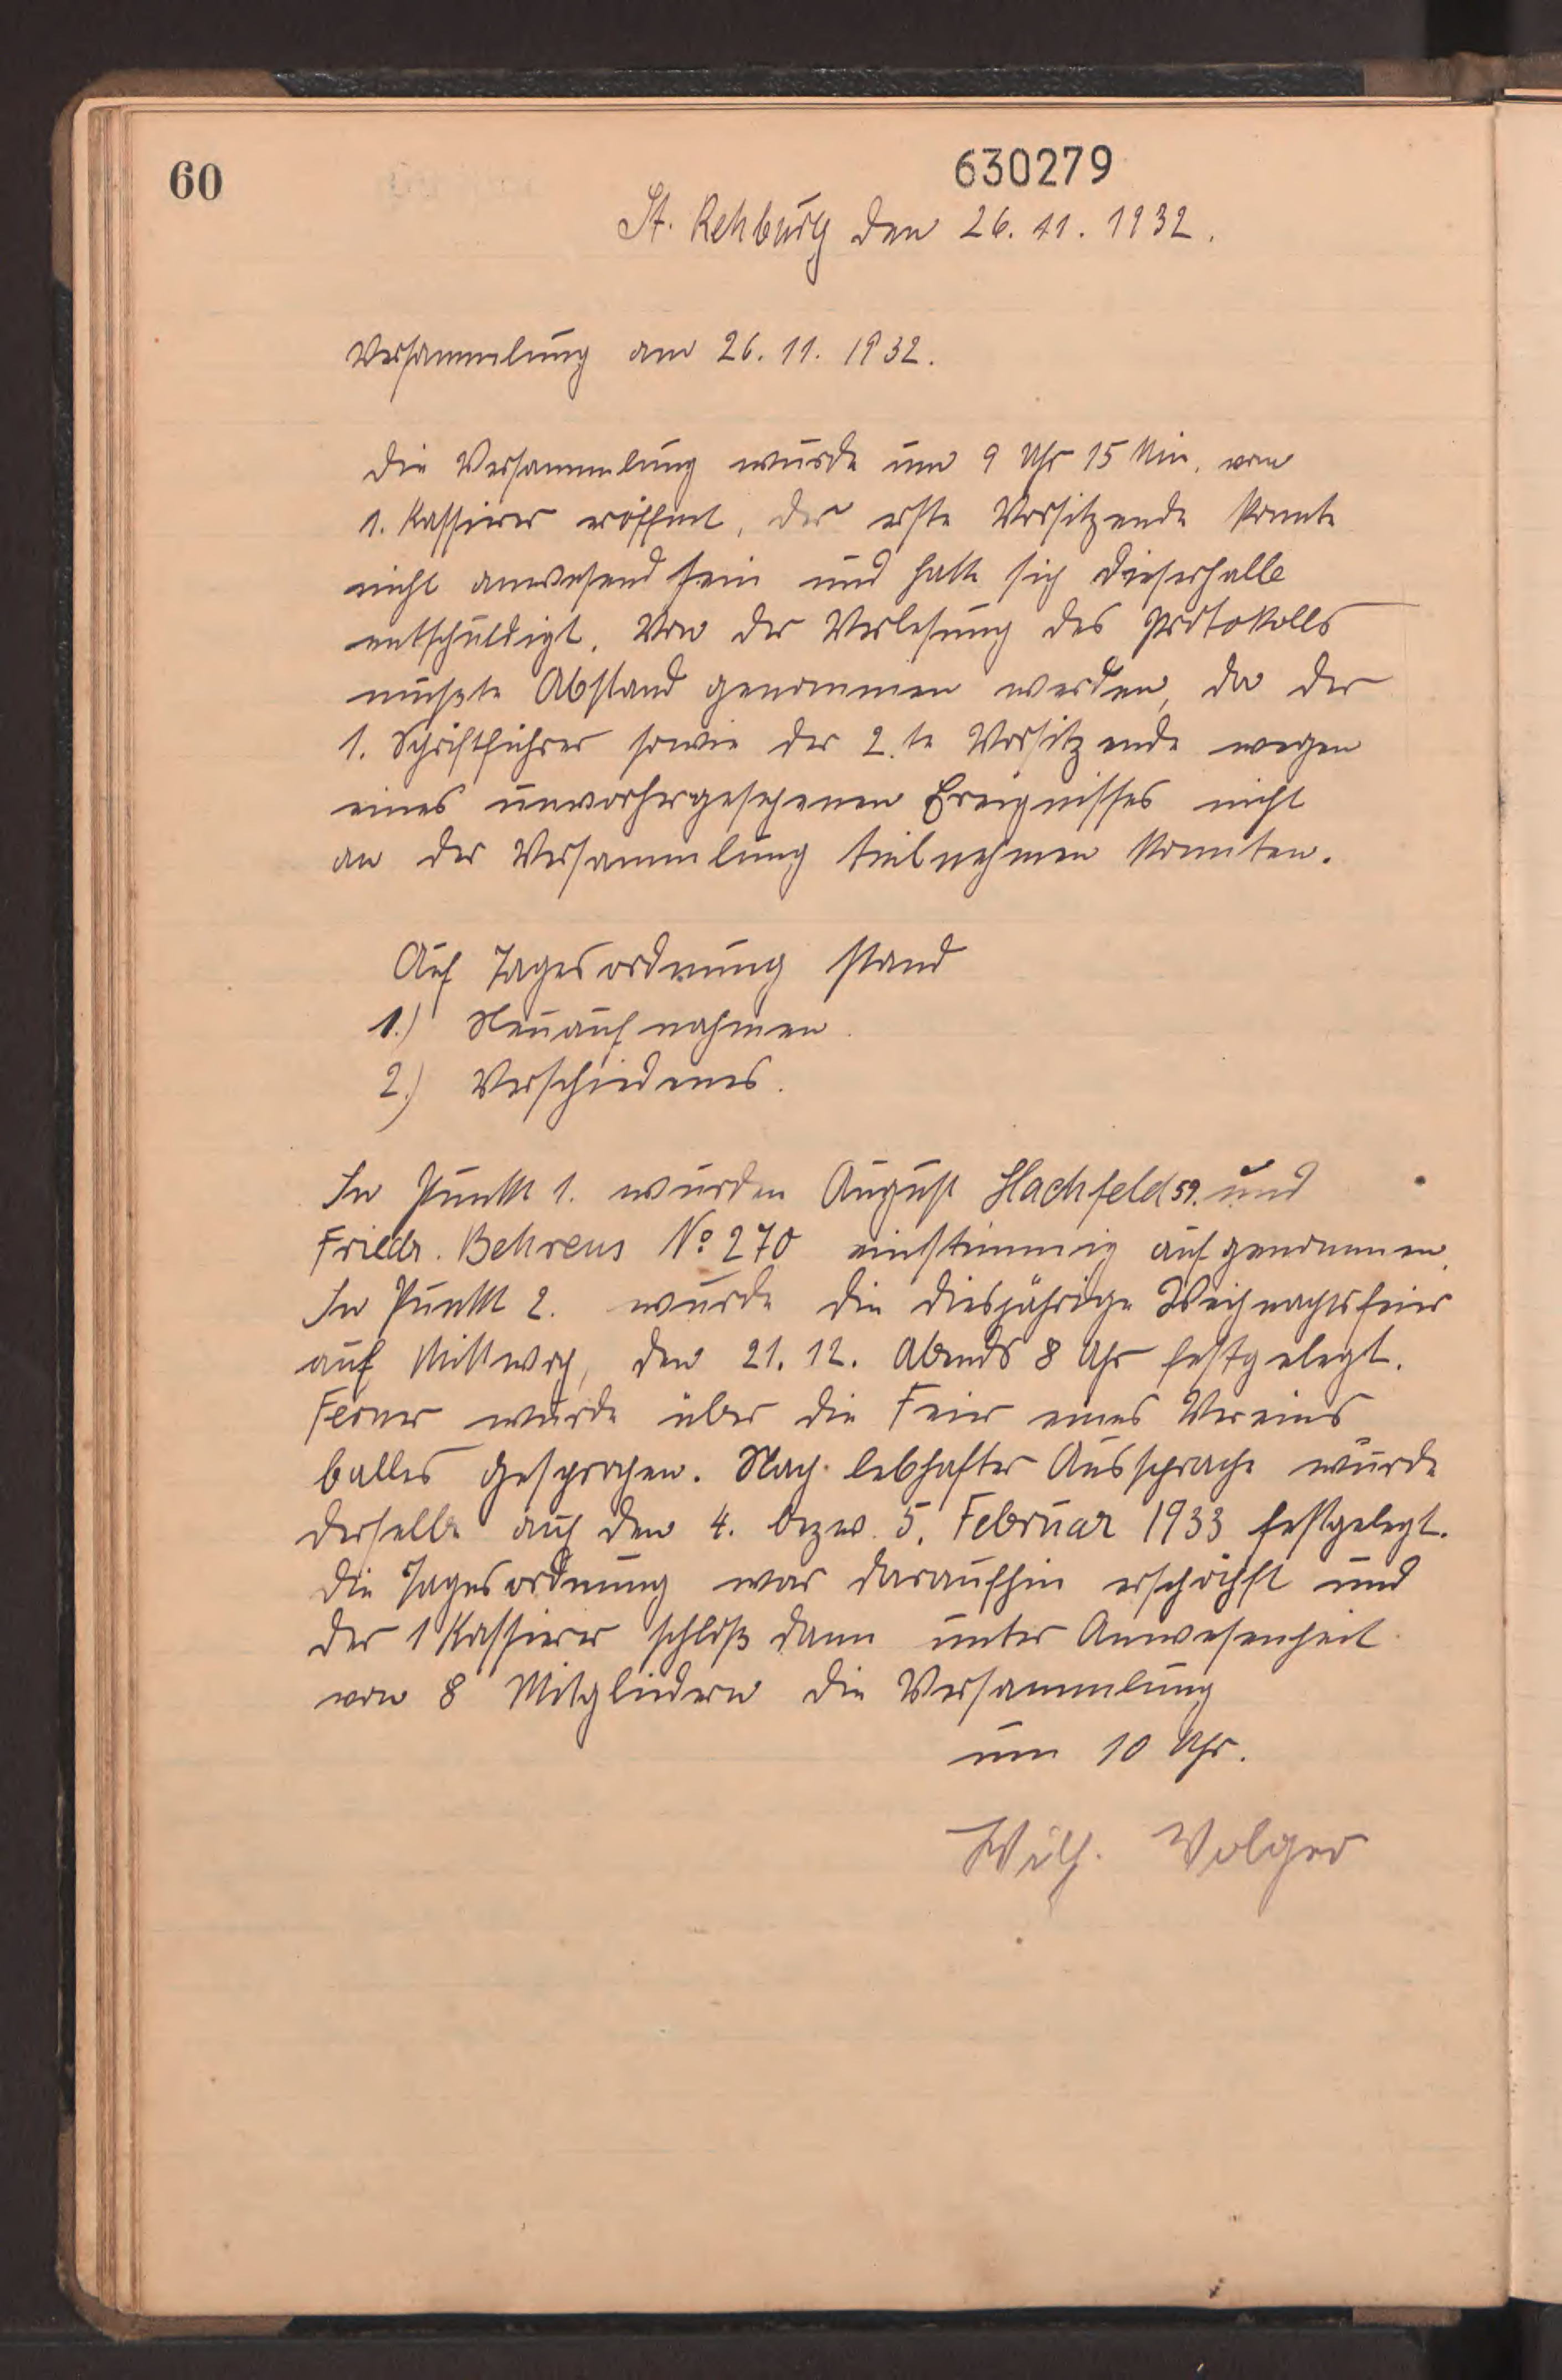 60
630279
St. Rehburg den 26. 11. 1932.
Versammlung am 26. 11. 1932.
Die Versammlung wurde um 9 Uhr 15 Min. vom
1. Kassierer eröffnet, der erste Vorsitzende konnte
nicht anwesend sein und hatte sich dieserhalb
entschuldigt. Von der Verlesung des Protokolls
muszte Abstand genommen werden, da der
1. Schriftführer sowie der 2.te Vorsitzende wegen
eines unvorhergesehenen Ereignisses nicht
an der Versammlung teilnehmen konnten.
Auf Tagesordnung stand
1.) Neuaufnahmen.
2.) Verschiedenes.
In Punkt 1. wurden August Hachfeld 59. und
Friedr. Behrens No 270 einstimmig aufgenommen.
In Punkt 2. wurde die diesjährige Weihnachtsfeier
auf Mittwoch, den 21. 12. Abends 8 Uhr festgelegt.
Ferner wurde über die Feier eines Vereins
balles gesprochen. Nach lebhafter Aussprache wurde
derselbe auf den 4. bezw. 5. Februar 1933 festgelegt.
Die Tagesordnung war daraufhin erschöpft und
der 1 Kassierer schloß dann unter Anwesenheit
von 8 Mitgliedern die Versammlung
um 10 Uhr.
Wilh. Volger